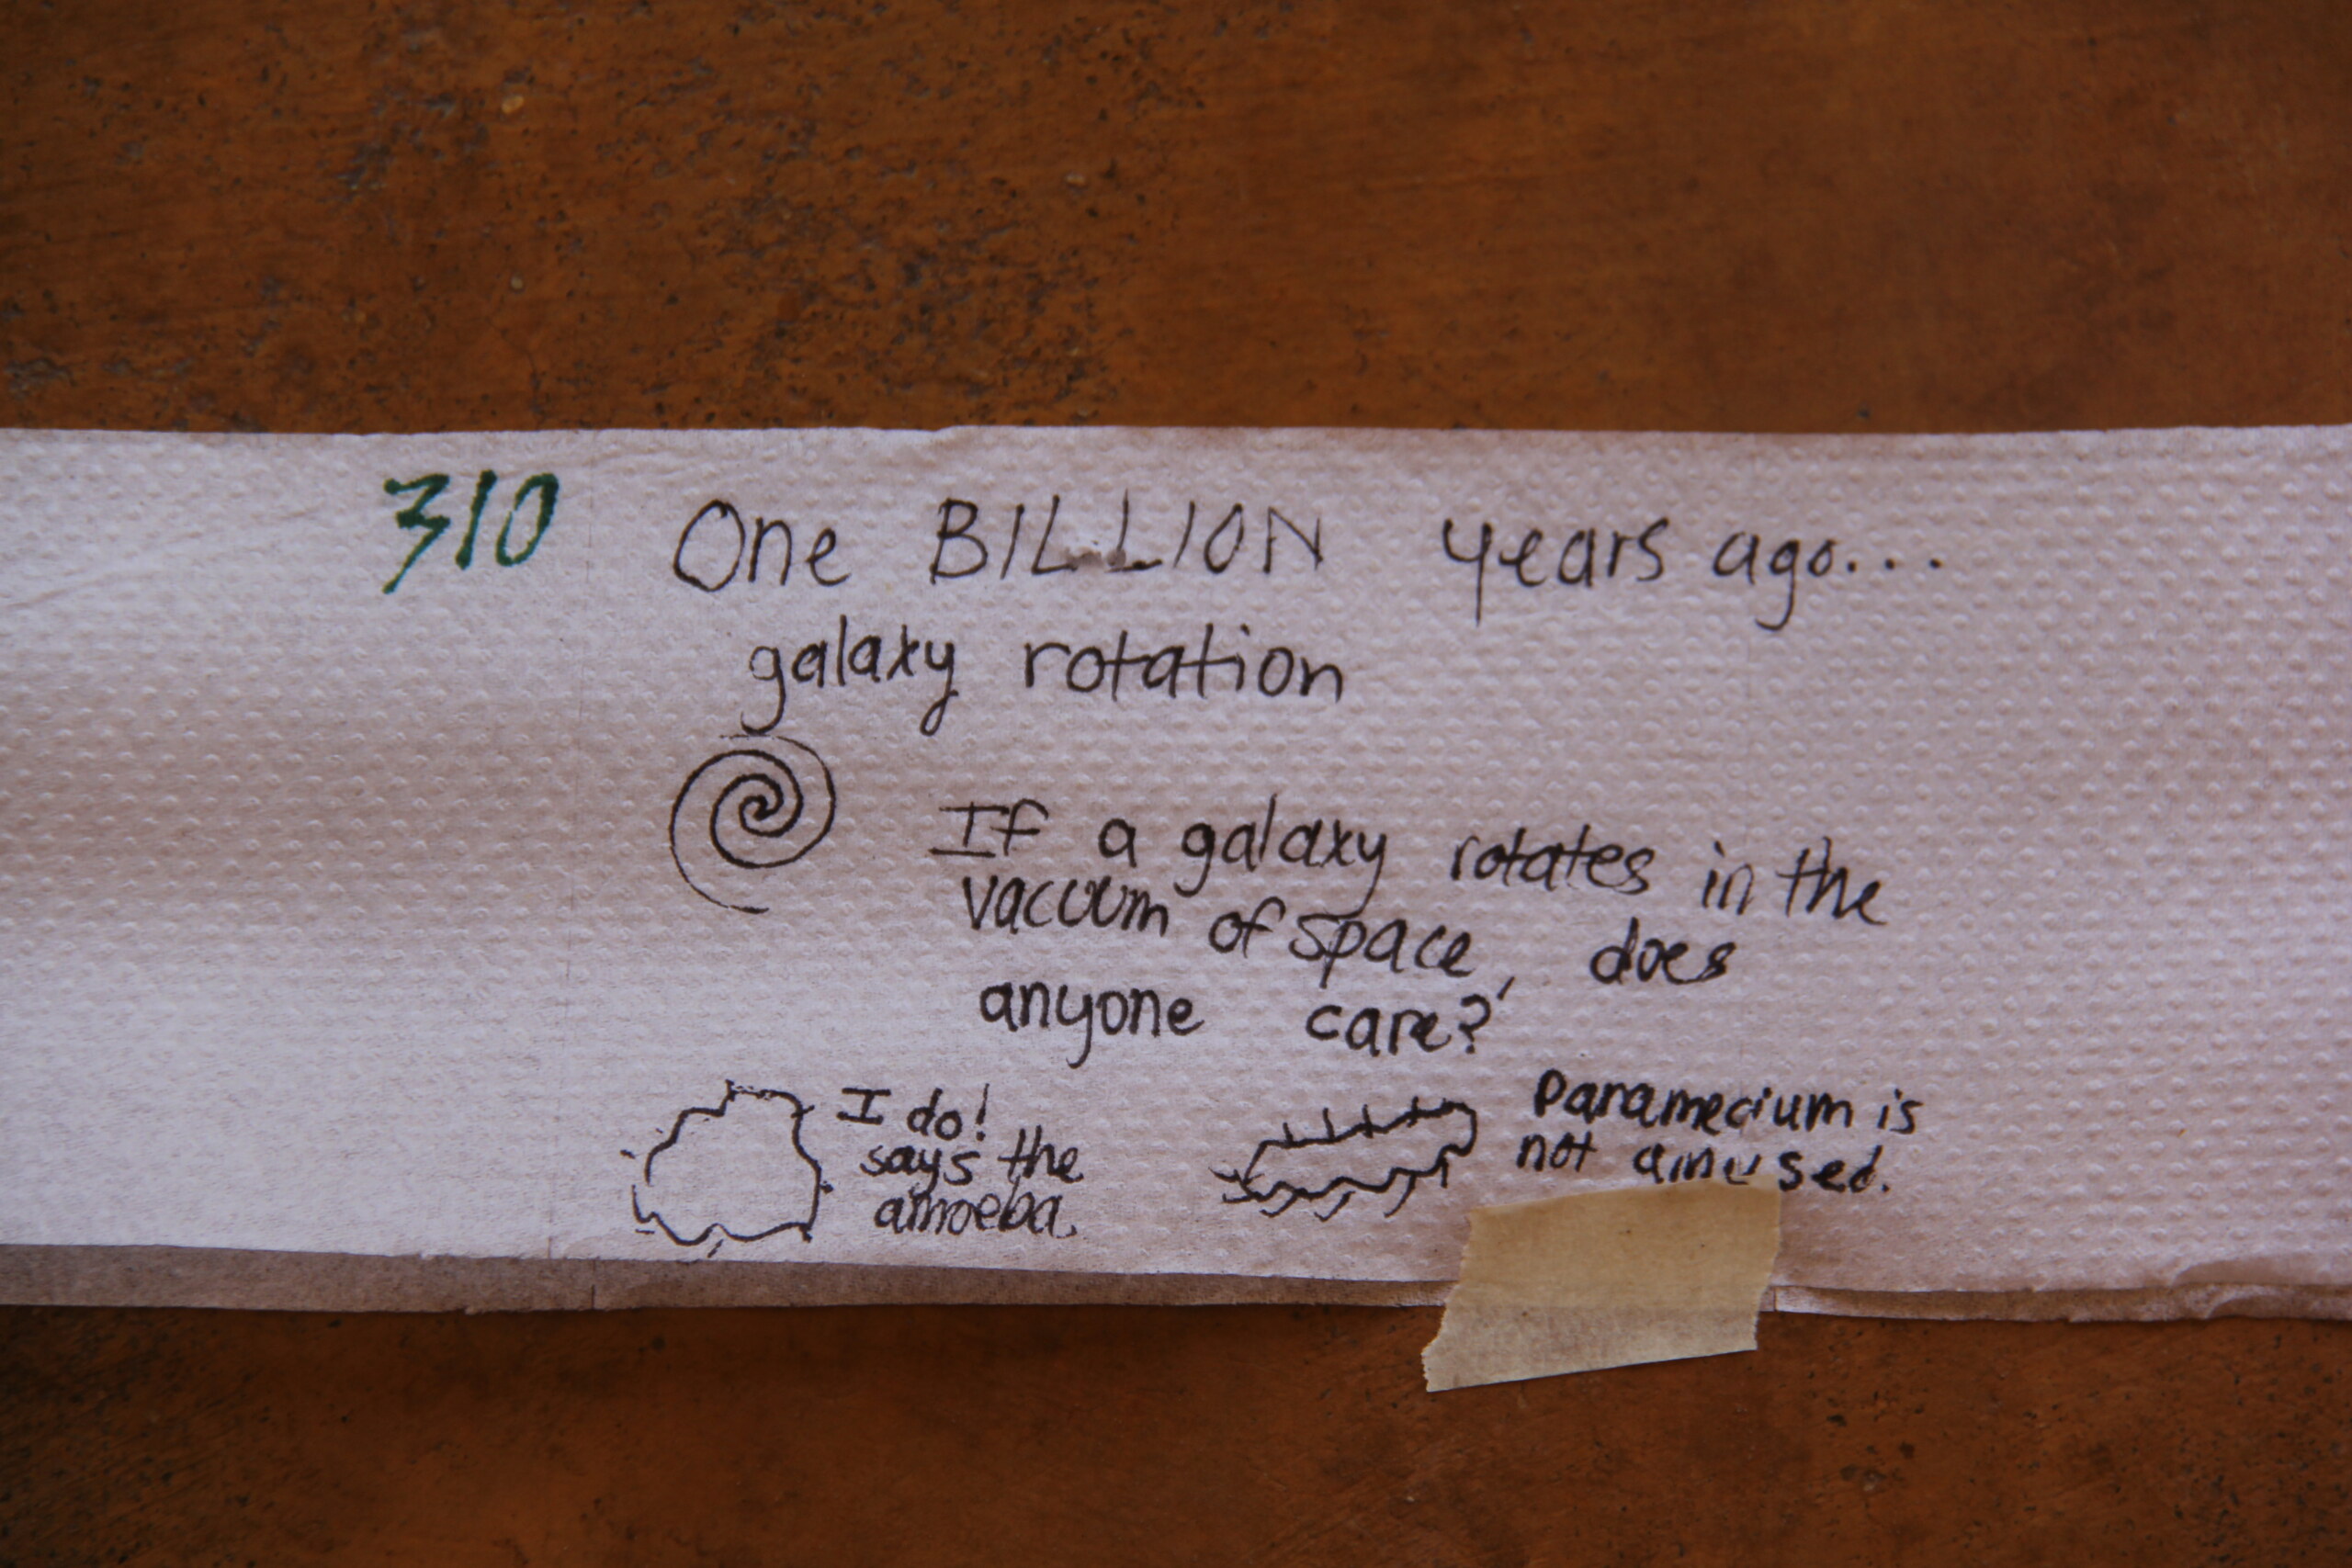 310 One BILLION years ago...
galaxy rotation
If a galaxy rotates in the
vacuum of space, does
anyone care?
I do!
says the
amoeba.
Paramecium is
not amused.